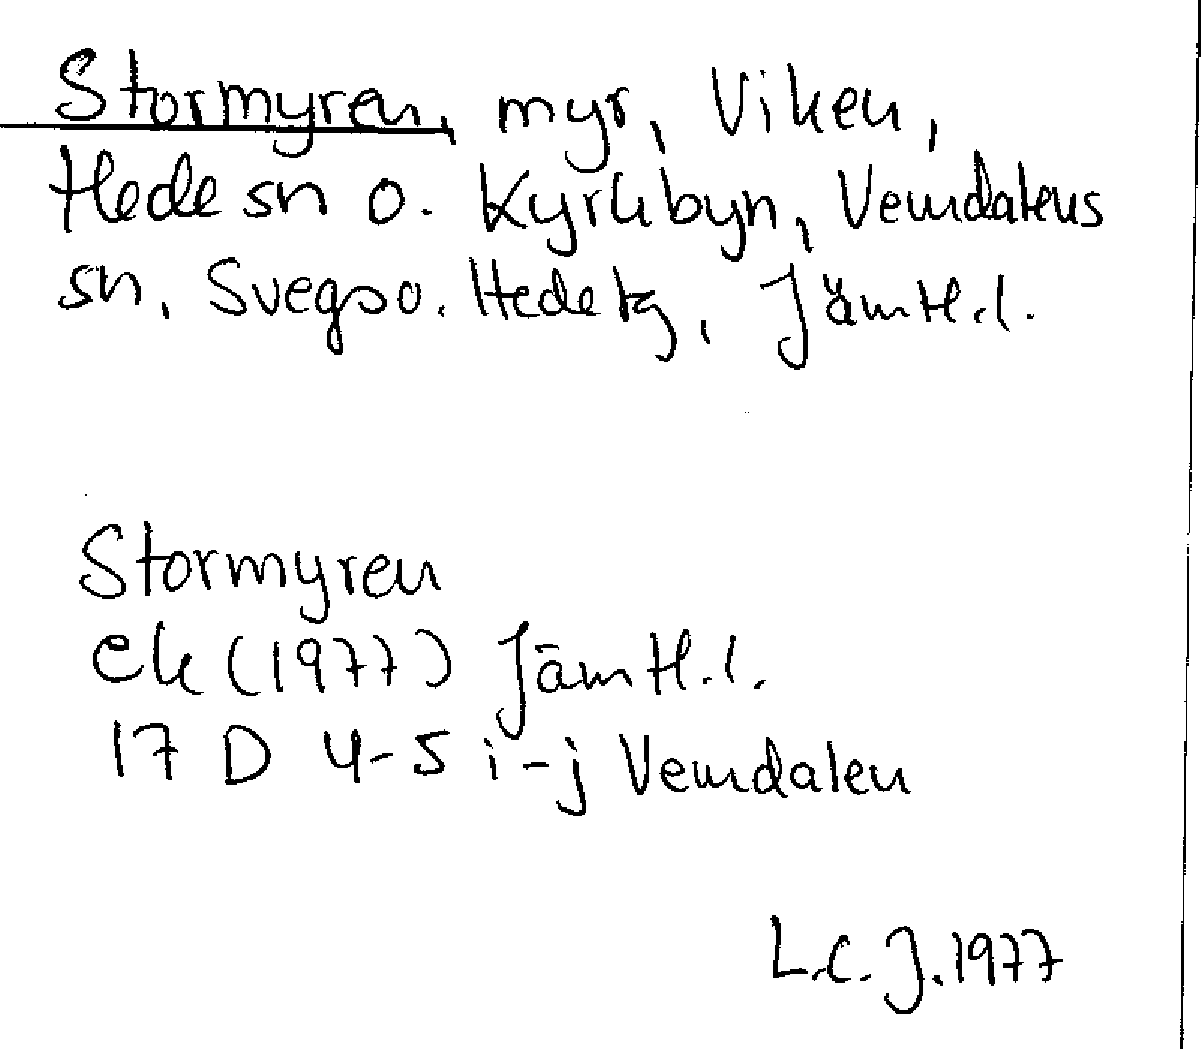 Stormyren, myr, Viken,
Hede sn o. Kyrkbyn, Vemdalens
sn, Svegs o. Hede tg, Jämtl.l.
Stormyren
ek (1977) Jämtl.l.
17 D 4-5 i-j Vemdalen
L.C.J. 1977